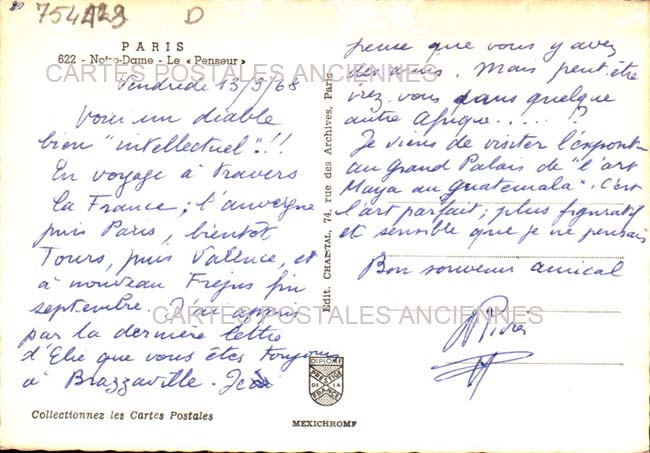 754123 D
PARIS
622 - Notre-Dame - Le « Penseur »
CARTES POSTALES ANCIENNES
Vendredi 13/9/68
Voici un diable
bien "intellectuel"!!!
En voyage à travers
la France; l'auvergne
puis Paris, bientôt
Tours, puis Valence, et
à nouveau Fréjus fin
septembre. J'ai appris
par la dernière lettre
d'Elie que vous êtes toujours
à Brazzaville. Je
Collectionnez les Cartes Postales
Edit. CHANTAL, 74, rue des Archives, Paris
DIPLOME
PRESTIGE
DE LA
FRANCE
MEXICHROME
pense que vous y avez
des amis. Mais peut être
irez vous dans quelque
autre Afrique.....?
Je viens de visiter l'expont-
au Grand Palais de "l'art
Maya au Guatemala". C'est
l'art parfait; plus figuratif
et sensible que je ne pensais
Bon souvenir amical
CARTES POSTALES ANCIENNES